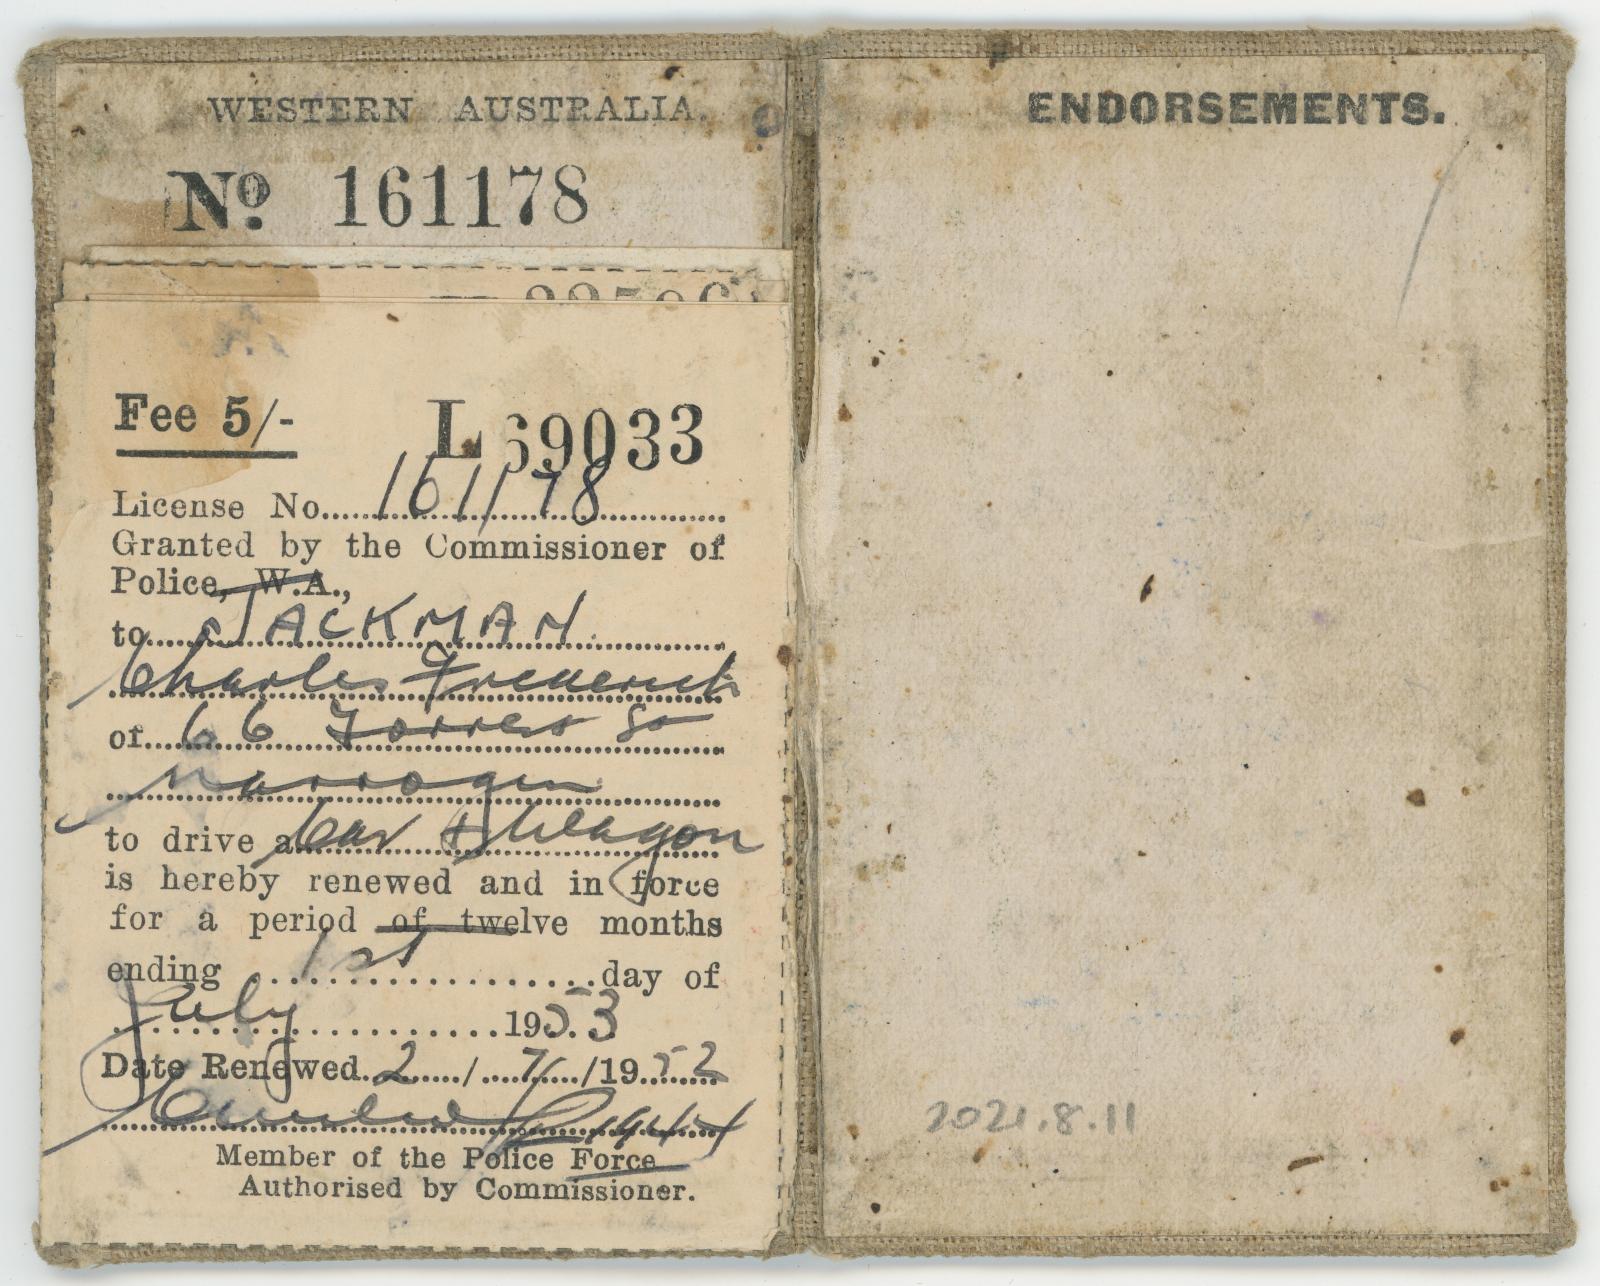 WESTERN AUSTRALIA.
No. 161178
Fee 5/- L 69033
License No. 161178
Granted by the Commissioner of
Police, W.A.,
to JACKMAN
Charles Frederick
of 66 Forrest St
Narrogin
to drive a Car & Wagon
is hereby renewed and in force
for a period of twelve months
ending 1st day of
July 1953
Date Renewed 2/7/1952
1944
Member of the Police Force
Authorised by Commissioner.
ENDORSEMENTS.
2021.8.11